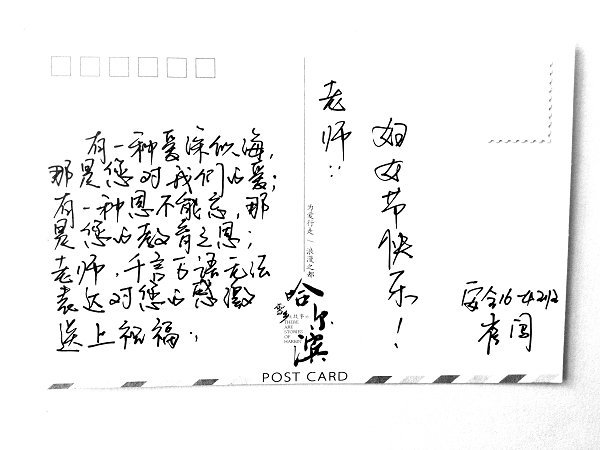 有一种爱深似海，
那是您对我们的爱；
有一种恩不能忘，那
是您的教育之恩；
老师，千言万语无法
表达对您的感激
送上祝福：
老师：
妇女节快乐！
为爱行走 | 浪漫之都
哈尔滨
THESE
ARE
STORIES
OF
HARBIN
POST CARD
安全16-4